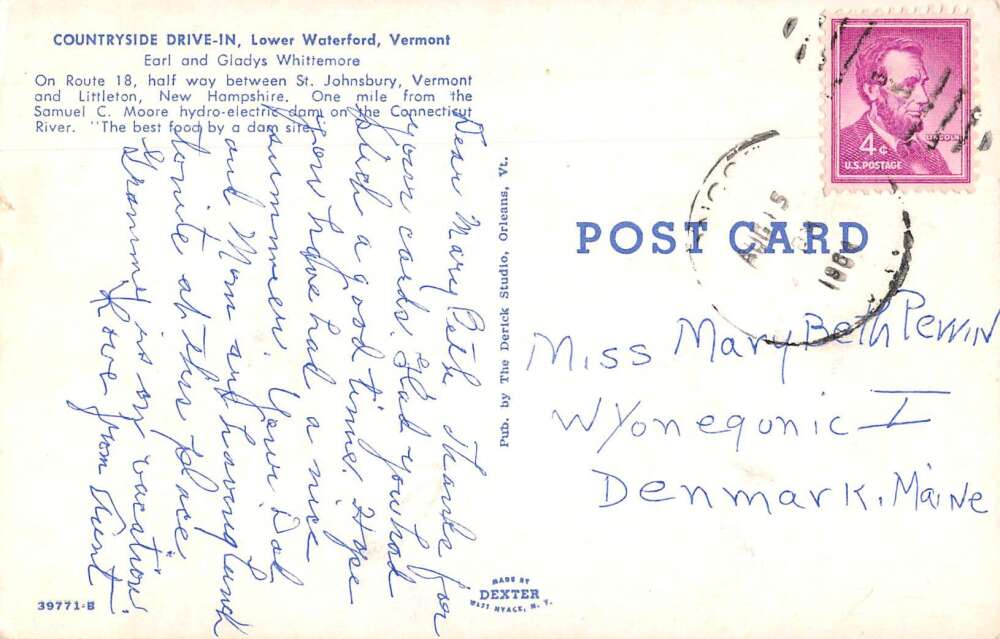 COUNTRYSIDE DRIVE-IN, Lower Waterford, Vermont
Earl and Gladys Whittemore
On Route 18, half way between St. Johnsbury, Vermont
and Littleton, New Hampshire. One mile from the
Samuel C. Moore hydro-electric dam on the Connecticut
River. "The best food by a dam site."
Dear Mary Beth, Thanks for
your cards. Glad you had
such a good time. Hope
you have had a nice
summer. Your Dad
and Mom are having lunch
tonite at this place
Granny is on vacation
Love from Aunt
Pub. by The Derick Studio, Orleans, Vt.
4¢
U.S. POSTAGE
LINCOLN
AUG 15
POST CARD
Miss Mary Beth Perrin
Wyonegonic I
Denmark, Maine
39771-B
MADE BY
DEXTER
WEST NYACK, N. Y.